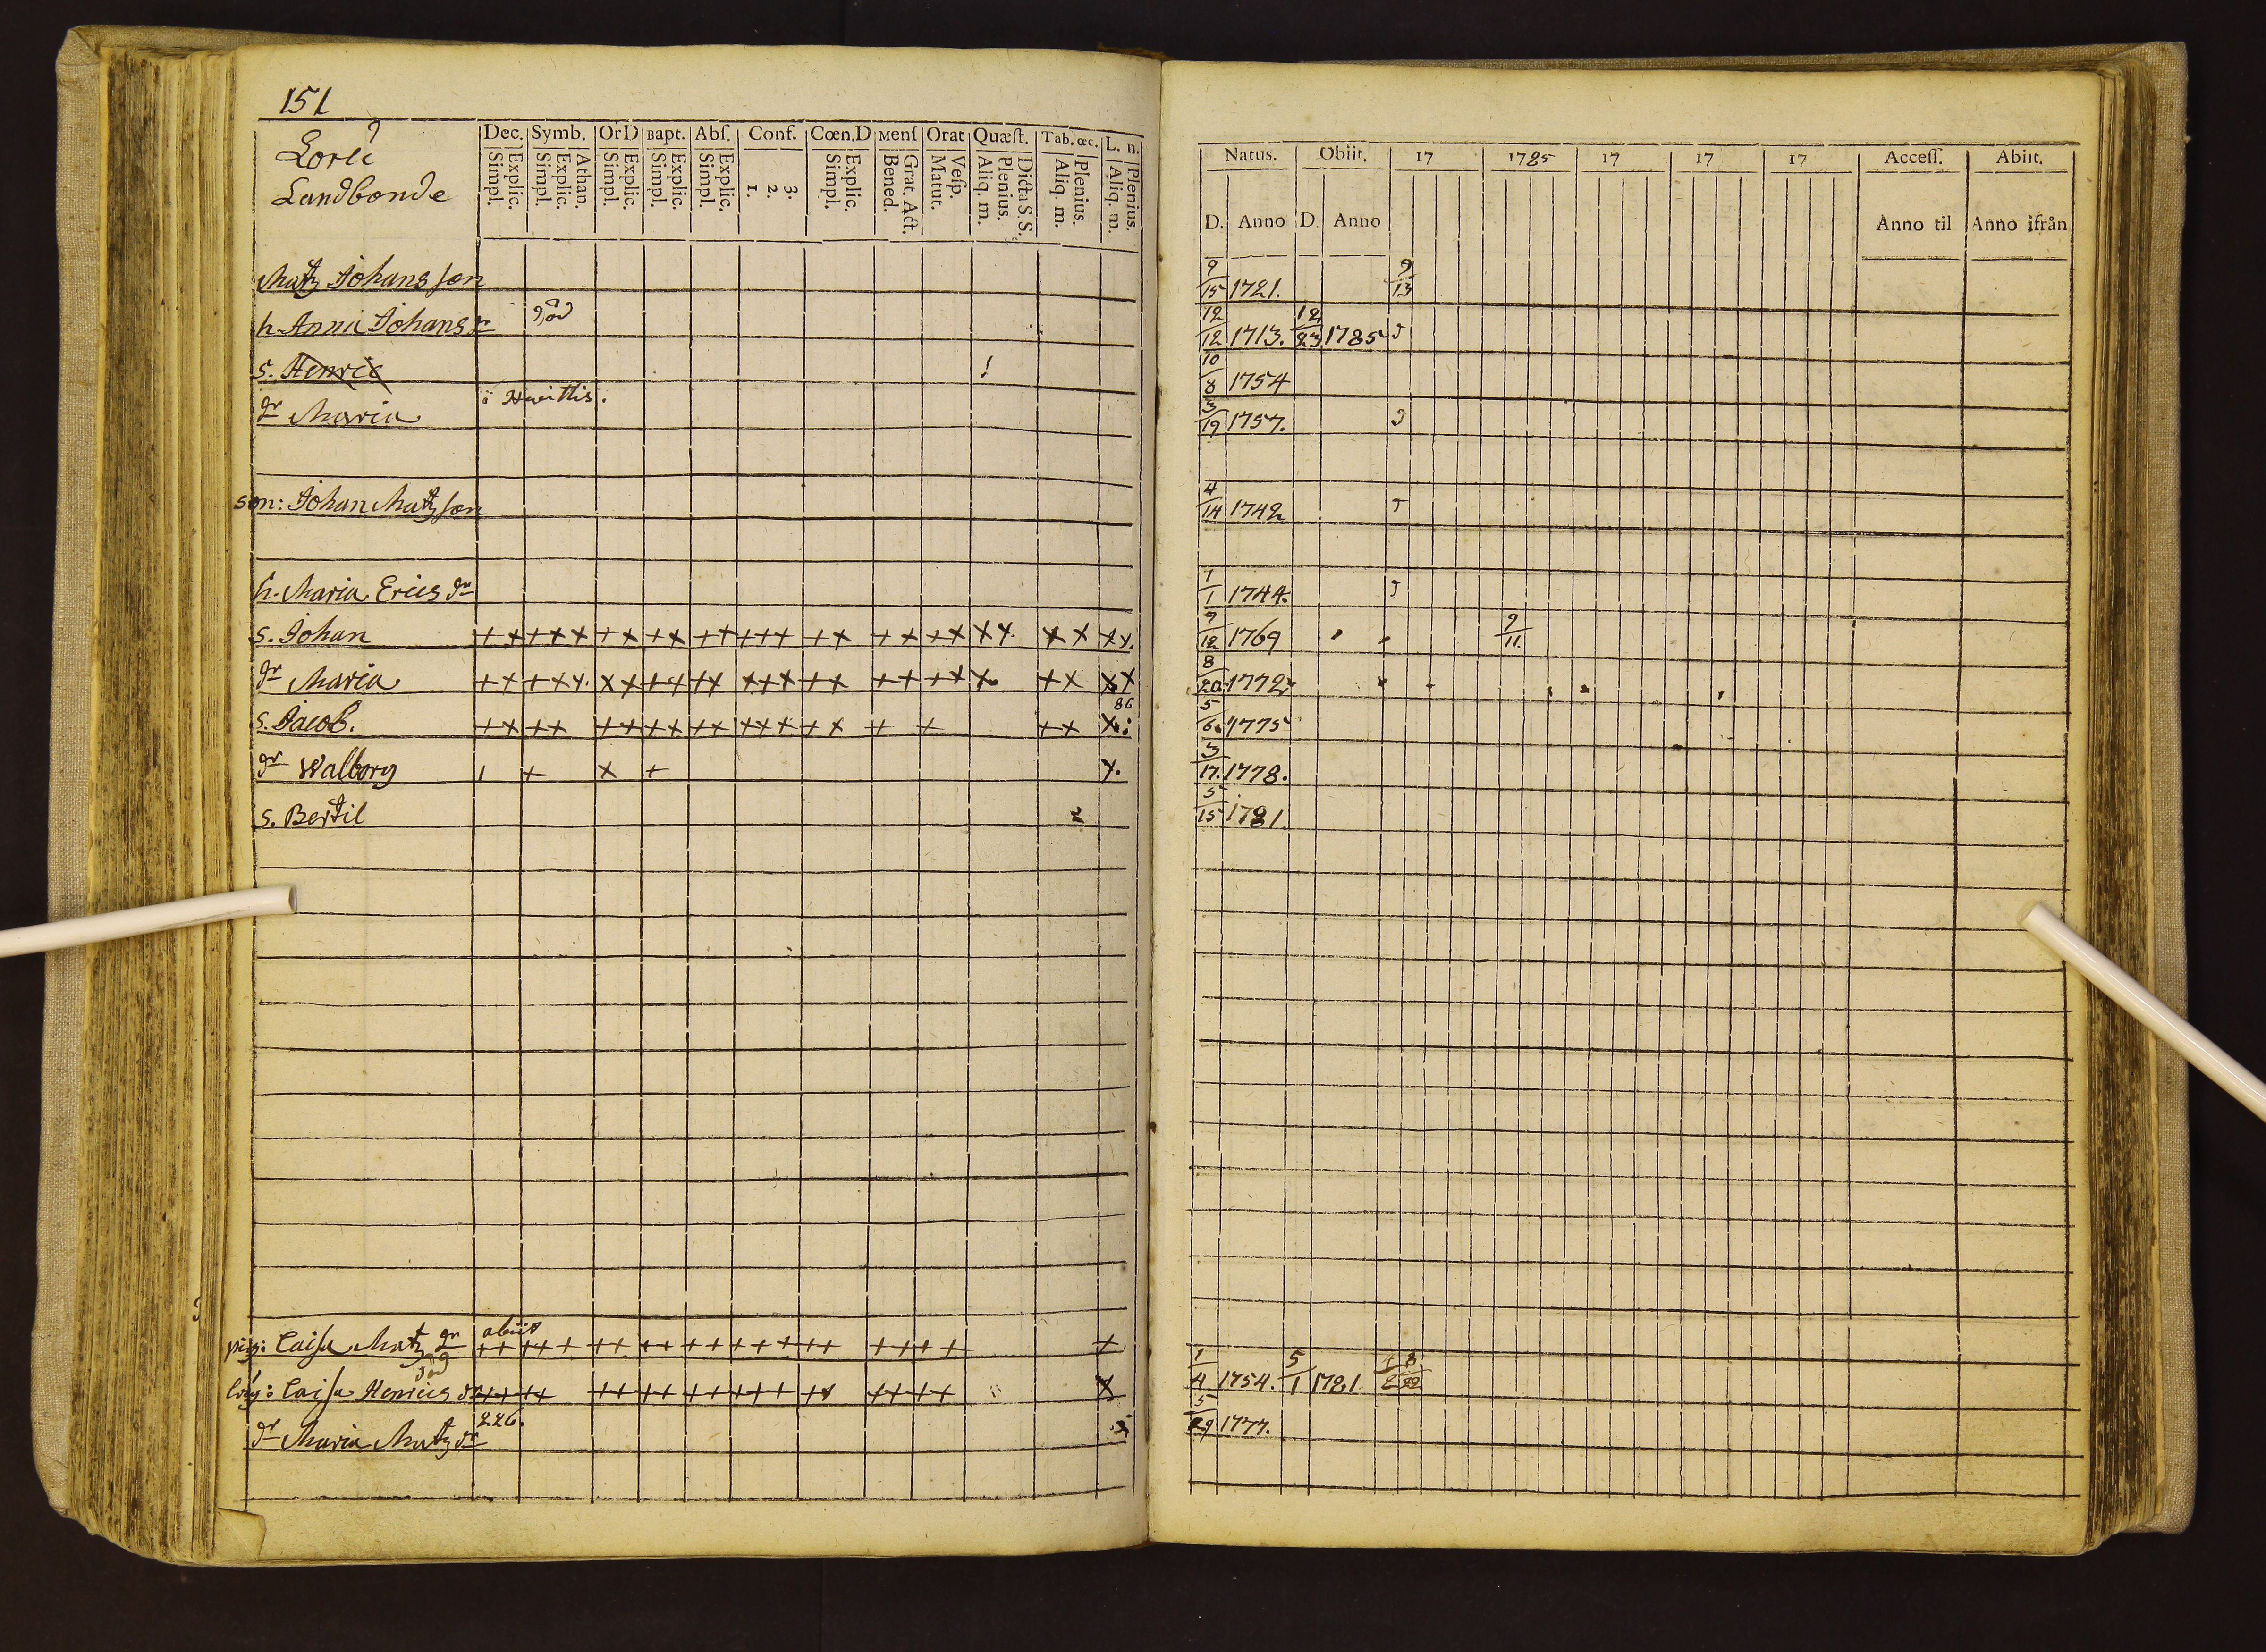 151
Landbonde
Dec. Symb. OrD Bapt. Abſ. Conf. Cœn.D Menſ Orat Quæſt. Tab. œc. L. n.
Explic. Simpl. Athan. Explic. Simpl. Explic. Simpl. Explic. Simpl. Explic. Simpl. 3. 2. 1. Explic. Simpl. Grat. Act. Bened. Veſp. Matut. Dicta S. S. Plenius. Aliq. m. Plenius. Aliq. m. Plenius. Aliq. m.
Natus. Obiit. 17 1785 17 17 17 Acceſſ. Abiit.
D. Anno D. Anno Anno til Anno ifrån
Matz Johansſon 9/15 1721. 9/13
död
h. Anna Johans dr 12/12 1713. 12/23 1785
s. Henric ! 10/8 1754
i Hvittis.
dr Maria 3/19 1757.
son: Johan Matzſon 4/14 1742
h. Maria Erics dr 1/1 1744.
s. Johan ++ +++ ++ ++ ++ +++ ++ ++ ++ ++ ++ ++ 9/12 1769 9/11.
dr Maria ++ +++ ++ ++ ++ +++ ++ ++ ++ + ++ ++ 8/20 1772
86
s. Jacob. ++ ++ ++ ++ ++ +++ ++ + + ++ + 5/6 1775
dr Walborg + + + + + 3/17. 1778.
s. Bertil 2 5/15 1781.
abiit
pig: Caisa Matz dr ++ +++ ++ ++ ++ +++ ++ ++ ++ +
död
Caisa Henrics dr ++ ++ ++ ++ ++ +++ ++ ++ ++ + 1/4 1754. 5/1 1781
226.
dr Maria Matz dr 5/29 1777.